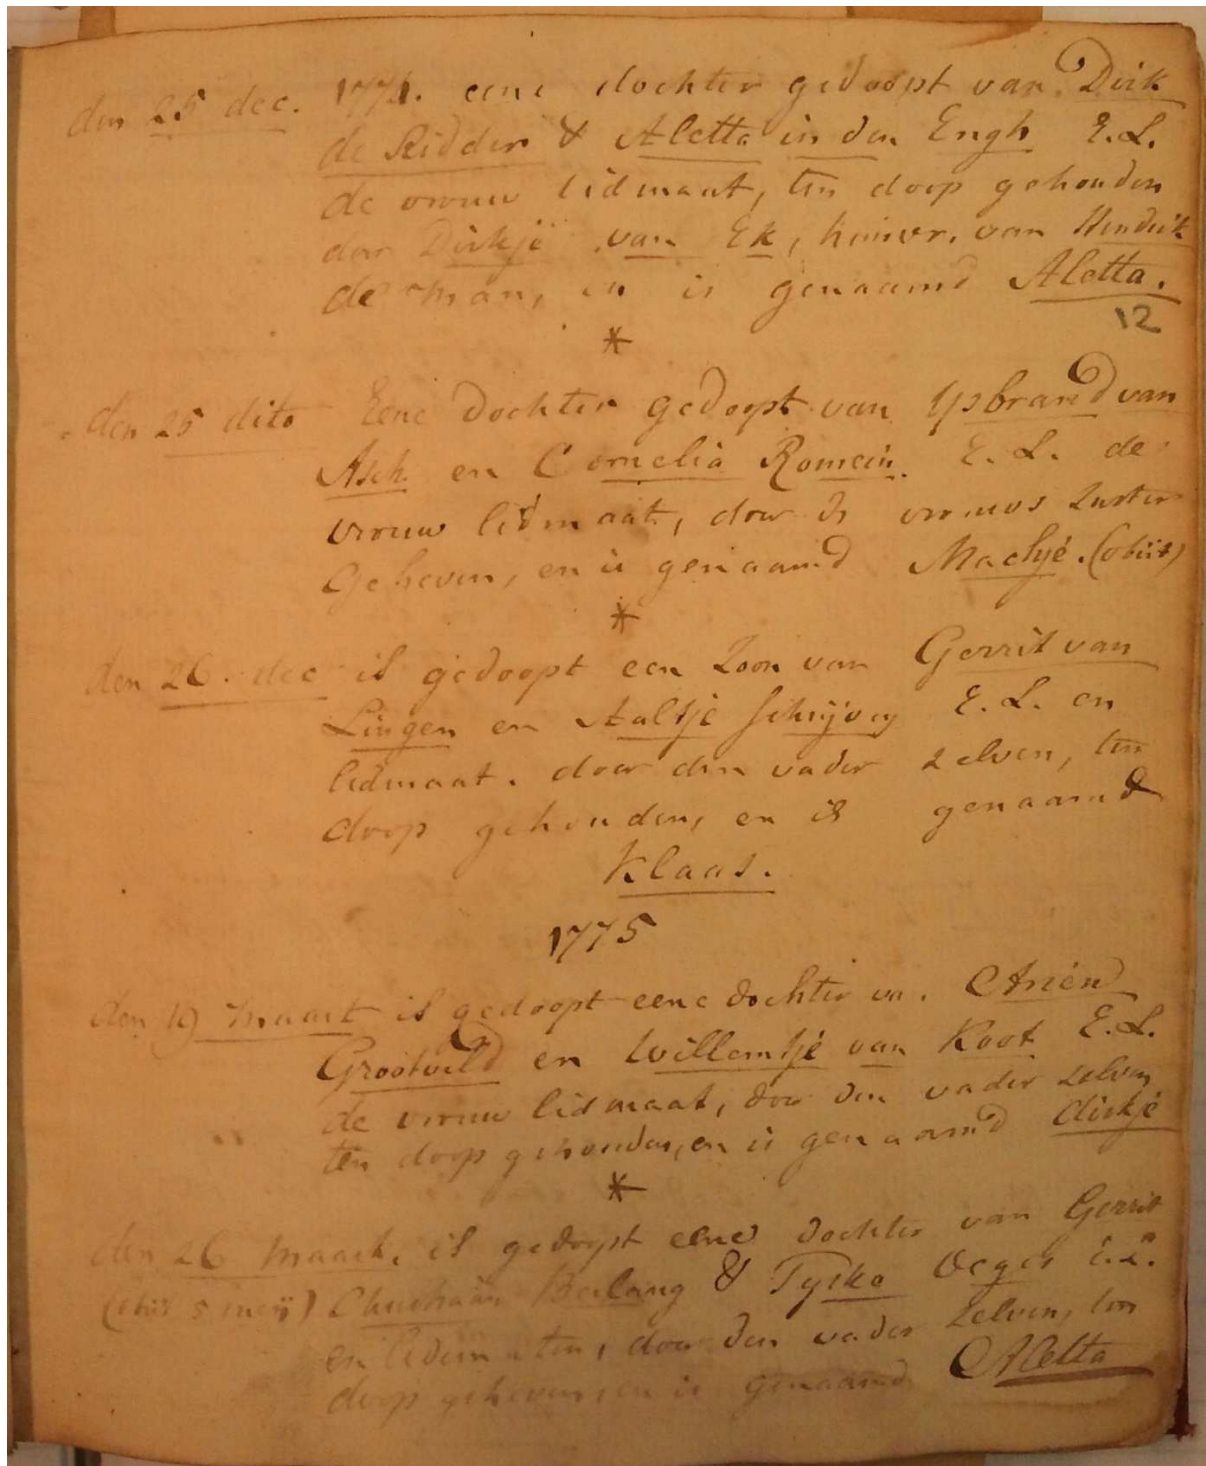 den 25 dec. 1774. eene dochter gedoopt van Dirk
de Ridder & Aletta in den Engh E.L.
de vrouw lidmaat, ten doop gehouden
door Dirkje van Ek, huisvr. van Hendrik
de Man, en is genaamd Aletta.
12
*
den 25 dito Eene dochter gedoopt van Ysbrand van
Asch en Cornelia Romein. E. L. de
vrouw lidmaat, door vrouws zuster
Geheven, en is genaamd Machje. (obiit)
*
den 26. dec is gedoopt een Zoon van Gerrit van
Lingen en Aaltje Schrijvers E. L. en
lidmaat. door den vader zelven, ten
doop gehouden, en is genaamd
Klaas.
1775
den 19 Maart is gedoopt eene dochter va. Arien
Grootveld en Willemtje van Koot E.L.
de vrouw lidmaat, door den vader zelven
ten doop gehouden, en is genaamd dirkje
*
den 26 Maart. is gedoopt eene dochter van Gerrit
(obiit 5 meij) & Tyske E.L.
en lidematen, door den vader zelven, ten
doop geheven, en is genaamd Aletta